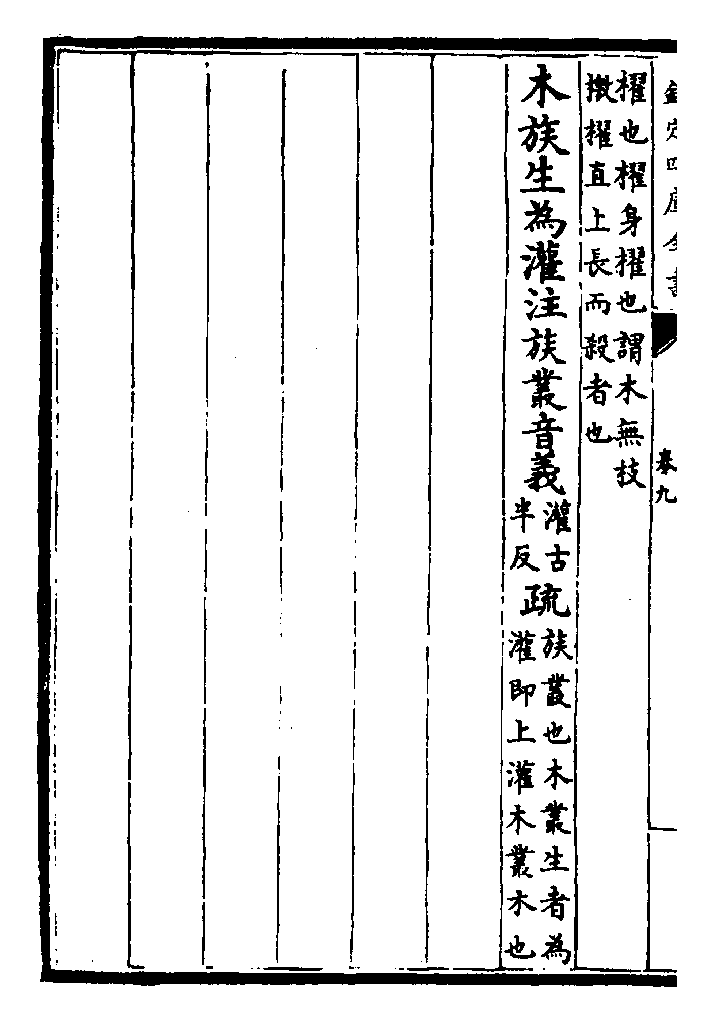 欽定四庫全書
卷九
櫂也櫂身櫂也謂木無枝
撽櫂直上長而殺者也
木族生為灌注族叢音義
灌古
半反
疏
族叢也木叢生者為
灌即上灌木叢木也